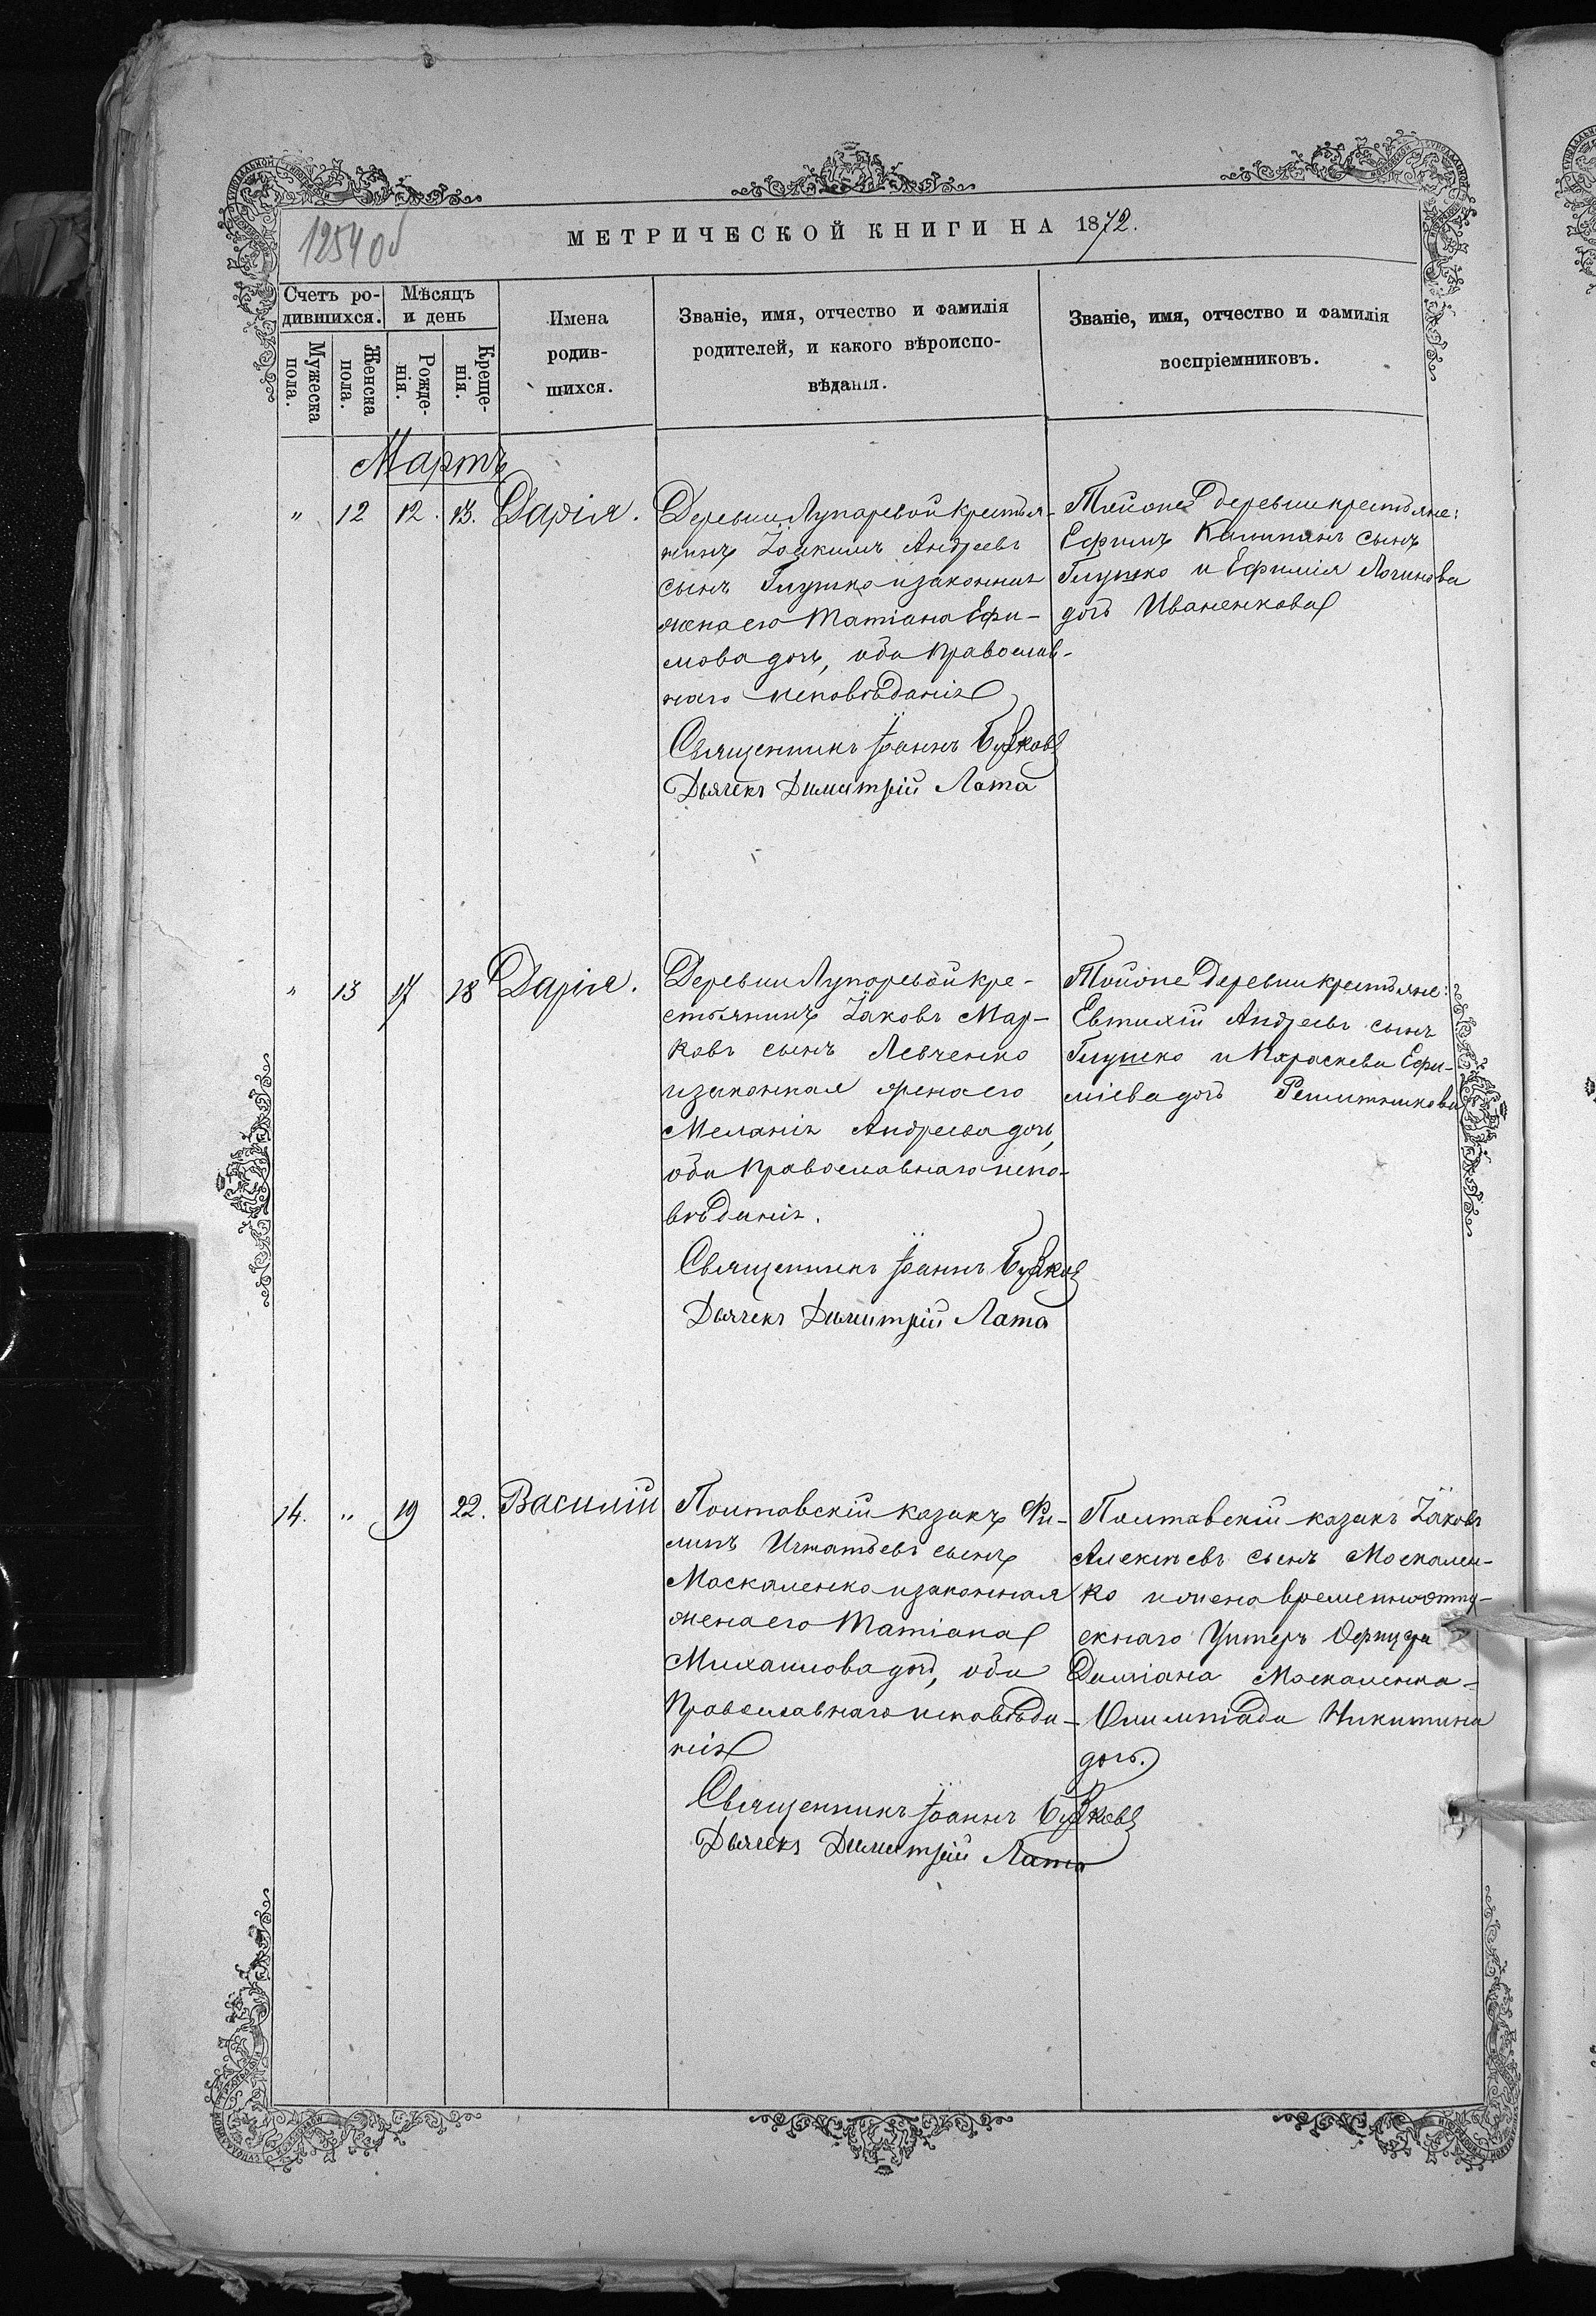 1254 об
МЕТРИЧЕСКОЙ КНИГИ НА 1872.
Счетъ ро-
дившихся.
Мѣсяцъ
и день
Мужеска
пола.
Женска
пола.
Рожде-
нія.
Креще-
нія.
Имена
родив-
шихся.
Званіе, имя, отчество и фамилія
родителей, и какого вѣроиспо-
вѣданія.
Званіе, имя, отчество и фамилія
воспріемниковъ.
Мартъ
" 12 12. 13. Дарія.
Деревни Лупаревой крестья-
нинъ Іоакимъ Андреевъ
сынъ Глушко и законная
жена его Татіана Ефи-
мова дочь, оба Православ-
наго исповѣданія
Священникъ Іоаннъ
Дьячекъ Димитрій Лата
Тойоже деревни крестьяне:
Ефимъ сынъ
Глушко и Ефимія Логинова
дочь Иваненкова
" 13 17 18 Дарія.
Деревни Лупаревой кре-
стьянинъ Іаковъ Мар-
ковъ сынъ Левченко
и законная жена его
Меланія Андреева дочь,
оба Православнаго испо-
вѣданія.
Священникъ Іоаннъ
Дьячекъ Димитрій Лата
Тойоже деревни крестьяне:
Евтихій Андреевъ сынъ
Глушко и Параскева Ефи-
міева дочь Решитникова
14. " 19 22. Василій
Полтавскій казакъ Фи-
липъ Игнатьевъ сынъ
Москаленко и законная
жена его Татіана
Михаилова дочь, оба
Православнаго исповѣда-
нія
Священникъ Іоаннъ
Дьячекъ Димитрій Лата
Полтавскій казакъ Іаковъ
Алексѣевъ сынъ Москален-
ко и жена временноотпу-
скнаго Унтеръ Офицера
Даміана Москаленка-
Олимпіада Никитина
дочь.